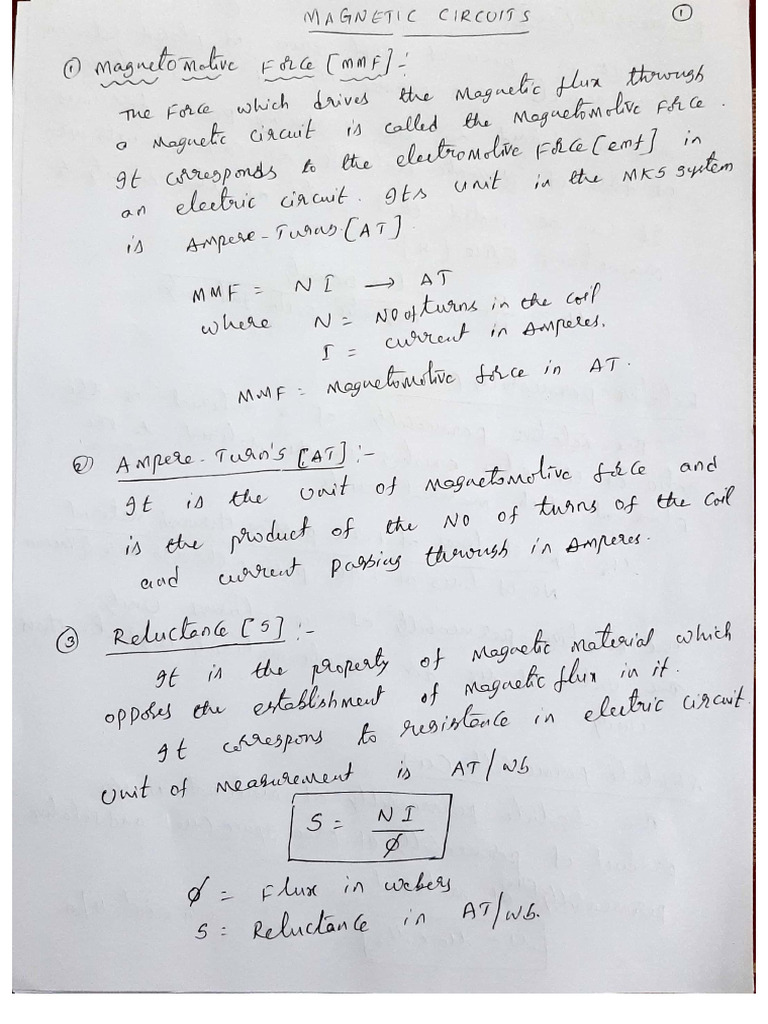 MAGNETIC CIRCUITS
①
① Magneto Motive Force [MMF]:-
The Force which drives the Magnetic flux through
a Magnetic circuit is called the Magnetomotive Force.
It corresponds to the electromotive Force [emf] in
an electric circuit. Its unit in the MKS system
is Ampere-Turns.[AT]
MMF = NI → AT
where N = No of turns in the coil
I = current in Amperes.
MMF = Magnetomotive force in AT.
② Ampere-Turn's [AT]:-
It is the Unit of Magnetomotive force and
is the product of the No of turns of the coil
and current passing through in Amperes.
③ Reluctance [S]:-
It is the property of Magnetic material which
opposes the establishment of Magnetic flux in it.
It correspons to resistance in electric circuit.
Unit of measurement is AT/wb
S = NI/ϕ
ϕ = Flux in webers
S = Reluctance in AT/wb.